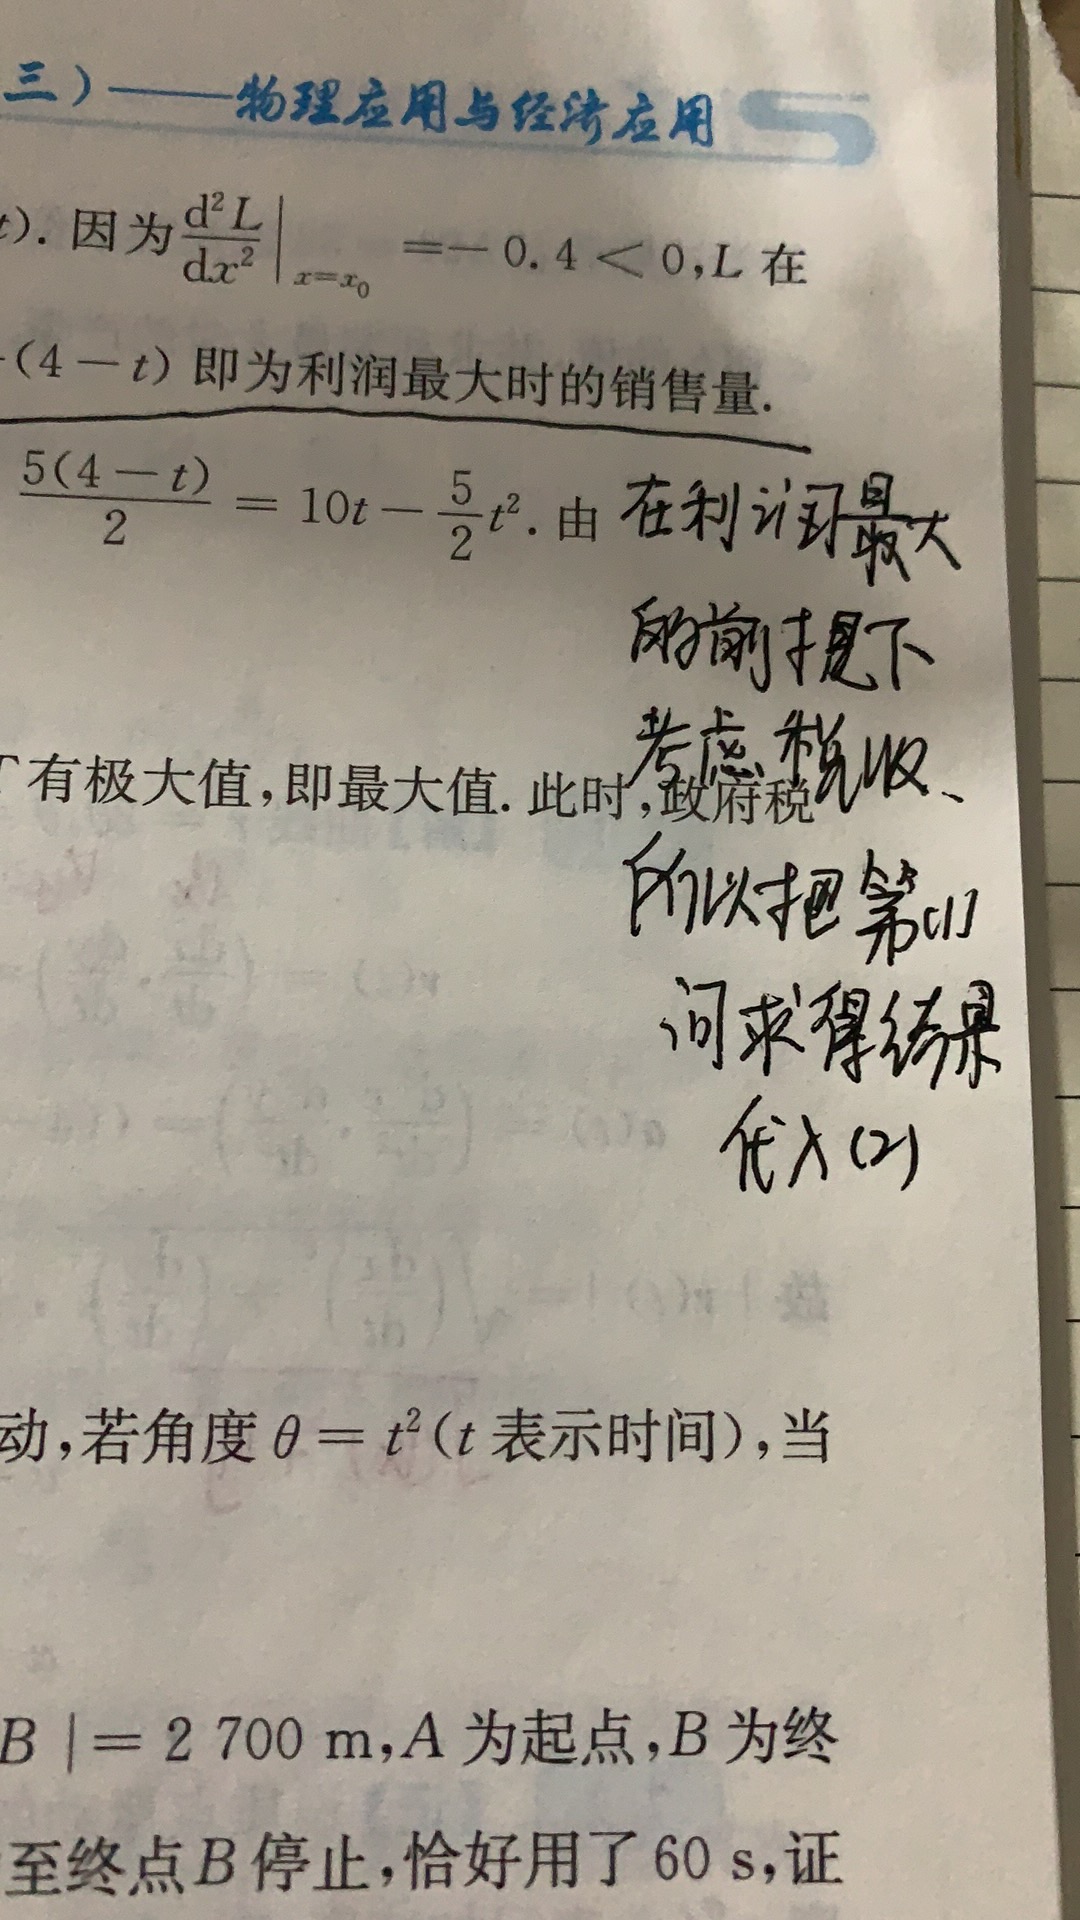 三)——物理应用与经济应用
t). 因为 d²L/dx² |ₓ₌ₓ₀ =-0.4<0,L 在
(4-t) 即为利润最大时的销售量.
5(4-t)/2 = 10t - 5/2 t². 由
在利润最大
的前提下
考虑税收、
有极大值,即最大值. 此时,政府税
所以把第(1)
问求得结果
代入(2)
动,若角度 θ = t²(t 表示时间),当
B |= 2 700 m,A 为起点,B 为终
至终点B停止,恰好用了 60 s,证